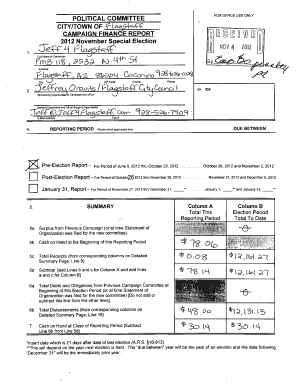 POLITICAL COMMITTEE
CITY/TOWN OF Flagstaff
CAMPAIGN FINANCE REPORT
2012 November Special Election
FOR OFFICE USE ONLY
RECEIVED
NOV 8 2012
Jeff 4 Flagstaff
PMB 118, 2532 N. 4th St.
Flagstaff, AZ 86004 Coconino
Jeffrey Oravits / Flagstaff City Council
Jeff@Jeff4Flagstaff.com 928-526-7909
4. REPORTING PERIOD
DUE BETWEEN
X Pre-Election Report - For Period of June 5, 2012 thru October 25, 2012 October 26, 2012 and November 2, 2012
Post-Election Report - For Period of October 26, 2012 thru November 26, 2012 November 27, 2012 and December 6, 2012
January 31, Report - For Period of November 27, 2012 thru December 31, January 1, and January 31,
5. SUMMARY
Column A
Total This
Reporting Period
Column B
Election Period
Total To Date
5a Surplus from Previous Campaign (or at time Statement of
Organization was filed for the new committee)
5b Cash on Hand at the Beginning of this Reporting Period $ 78.06
5c Total Receipts (from corresponding columns on Detailed
Summary Page, Line 8) $ 0.08 $ 12,161.27
5d Subtotal (add Lines b and c for Column A and add lines
a and c for Column B) $ 78.14 $ 12,161.27
6a Total Debts and Obligations from Previous Campaign Committee at
Beginning of this Election Period (or at time Statement of
Organization was filed for new committee) (Do not add or
subtract this line from the other lines)
6b Total Disbursements (from corresponding columns on
Detailed Summary Page, Line 18) $ 48.00 $ 12,131.13
7. Cash on Hand at Close of Reporting Period [Subtract
Line 6b from 5d] $ 30.14 $ 30.14
*Insert date which is 21 days after date of last election (A.R.S. §16-913).
**This will depend on the year next election is held. The "due between" year will be the year of an election and the date following
"December 31" will be the immediately prior year.